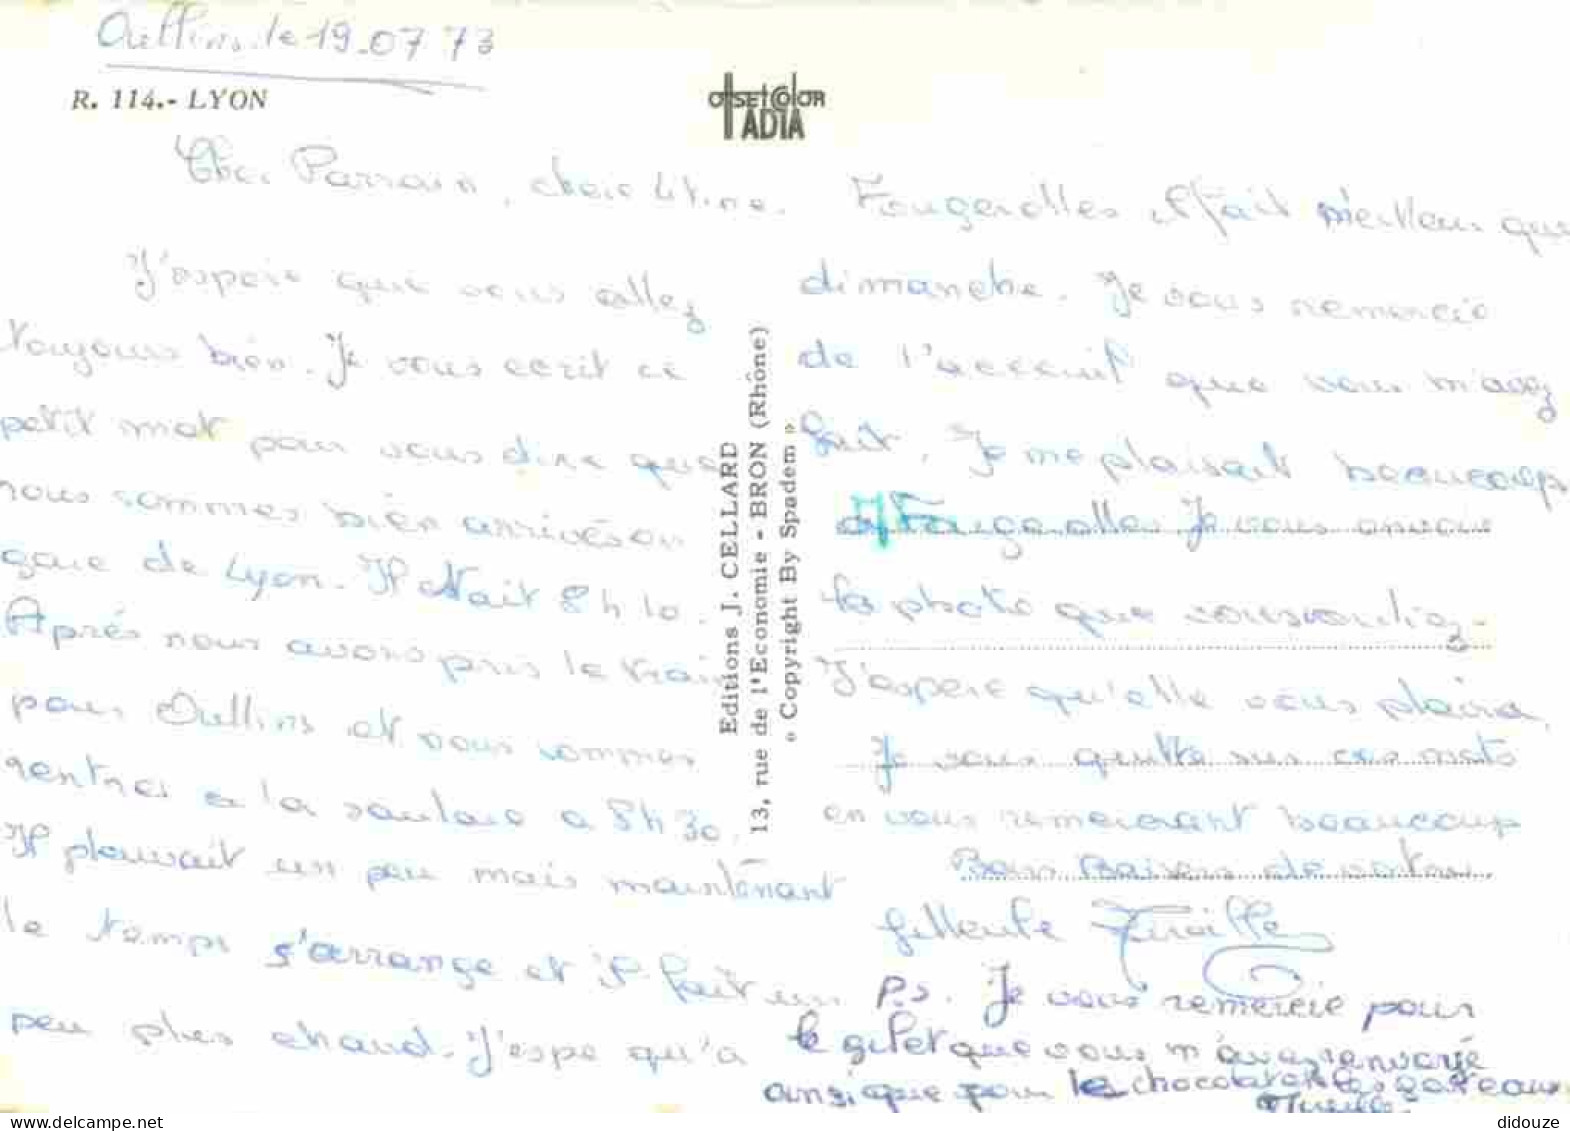 Oullins. le 19.07 73
R. 114.- LYON
OFFSET COLOR
ADIA
Cher Parrain, chere titine.
J'espere que vous allez
toujours bien. Je vous ecrit ce
petit mot pour vous dire que
nous sommes bien arrivés en
gare de Lyon. Il était 8 h 10.
Aprés nous avons pris le train
pour Oullins et nous sommes
rentres a la saulaie a 8h30.
Il pleuvait un peu mais maintenant
le temps s'arrange et il fait un
peu plus chaud. J'espe qu'a
Editions J. CELLARD
13, rue de l'Economie - BRON (Rhône)
« Copyright By Spadem »
Fougerolles il fait meilleur que
dimanche. Je vous remercie
de l'acceuil que vous m'avez
fait. Je me plaisait beaucoup
a Fougerolles. Je vous envoie
la photo que vous vouliez.
J'espere qu'elle vous plaira.
Je vous quitte sur ces mots
en vous remerciant beaucoup
Bons Baisers de votre
filleule Mireille
P.S. Je vous remercie pour
le gilet que vous m'avez renvoyé
ainsi que pour les chocolats et les gateaux
Mireille.
www.delcampe.net
didouze